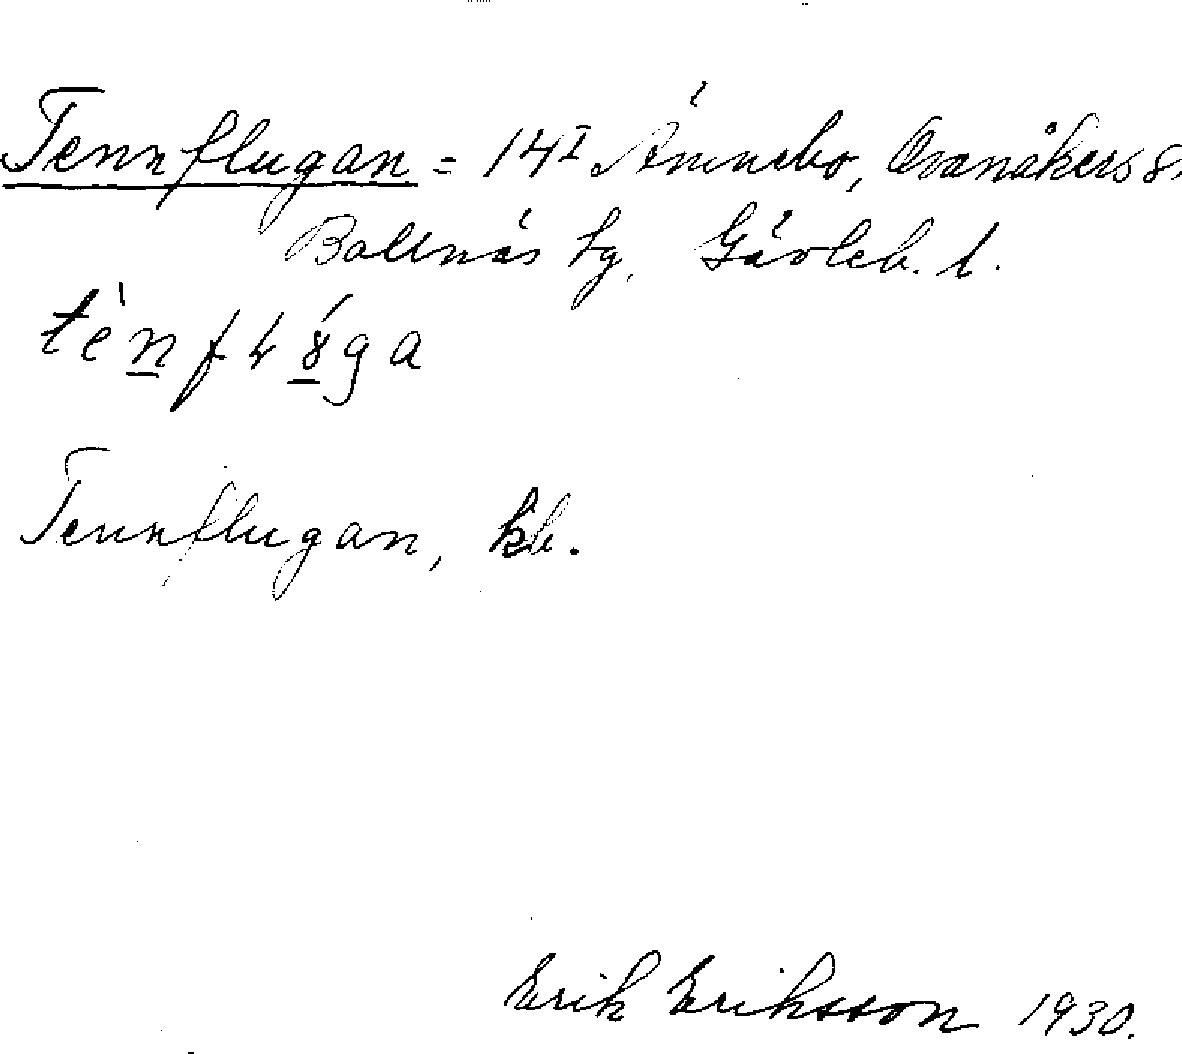 Tennflugan = 14I Ämnebo, Ovanåkers s.
Bollnäs tg, Gävleb. l.
Tennflugan, kb.
Erik Eriksson 1930.